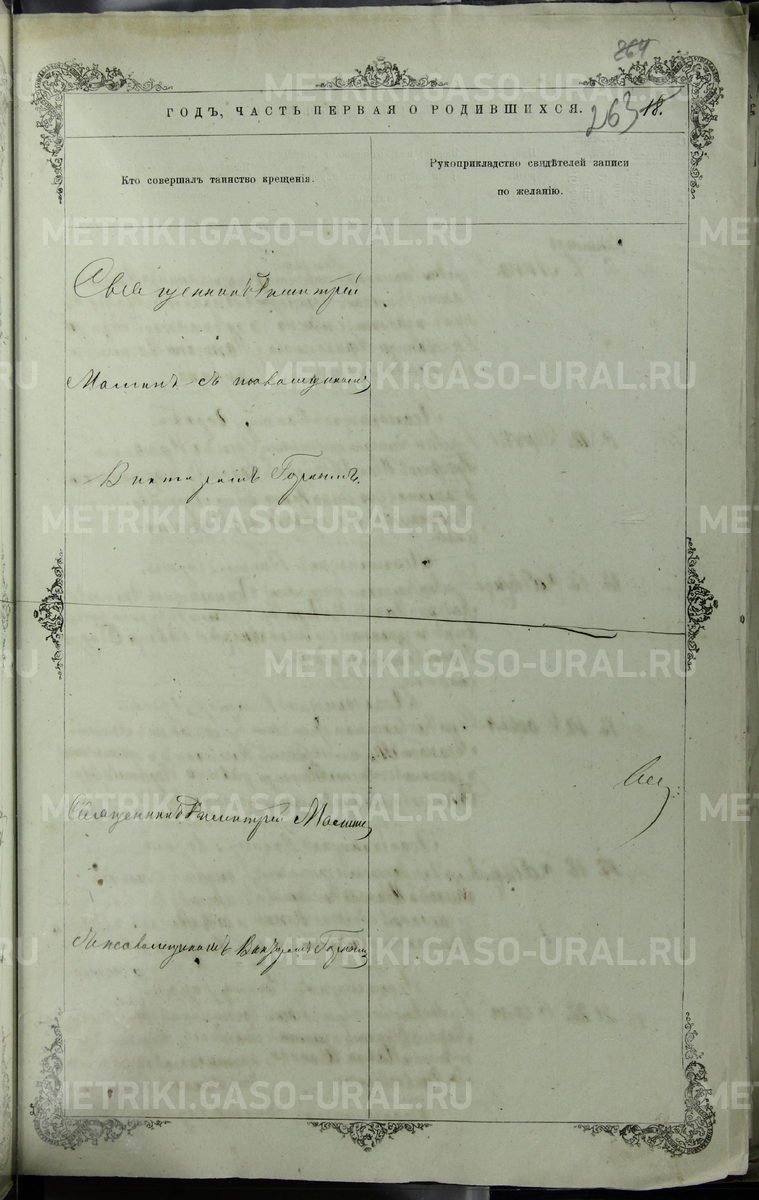 264
ГОДЪ, ЧАСТЬ ПЕРВАЯ О РОДИВШИХСЯ.
263 18.
Кто совершалъ таинство крещенія.
Рукоприкладство свидѣтелей записи
по желанію.
Священникъ Димитрій
съ псаломщикомъ
Священникъ Димитрій
съ псаломщикомъ
METRIKI.GASO-URAL.RU